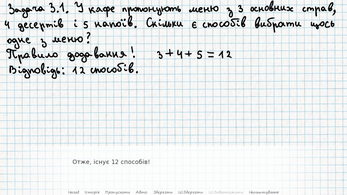 Задача 3.1. У кафе пропонують меню з 3 основних страв,
4 десертів і 5 напоїв. Скільки є способів вибрати щось
одне з меню?
Правило додавання! 3+4+5=12
Відповідь: 12 способів.
Отже, існує 12 способів!